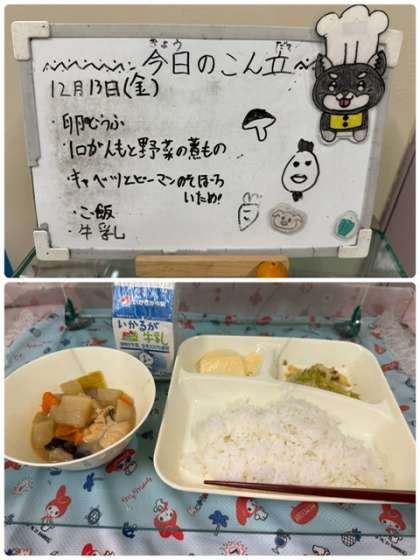 きょう だて
今日のこん立
12月13日(金)
・卵どうふ
・1口がんもと野菜の煮もの
・キャベツとピーマンのそぼろ
いため!
・ご飯
・牛乳
いかるが
牛乳